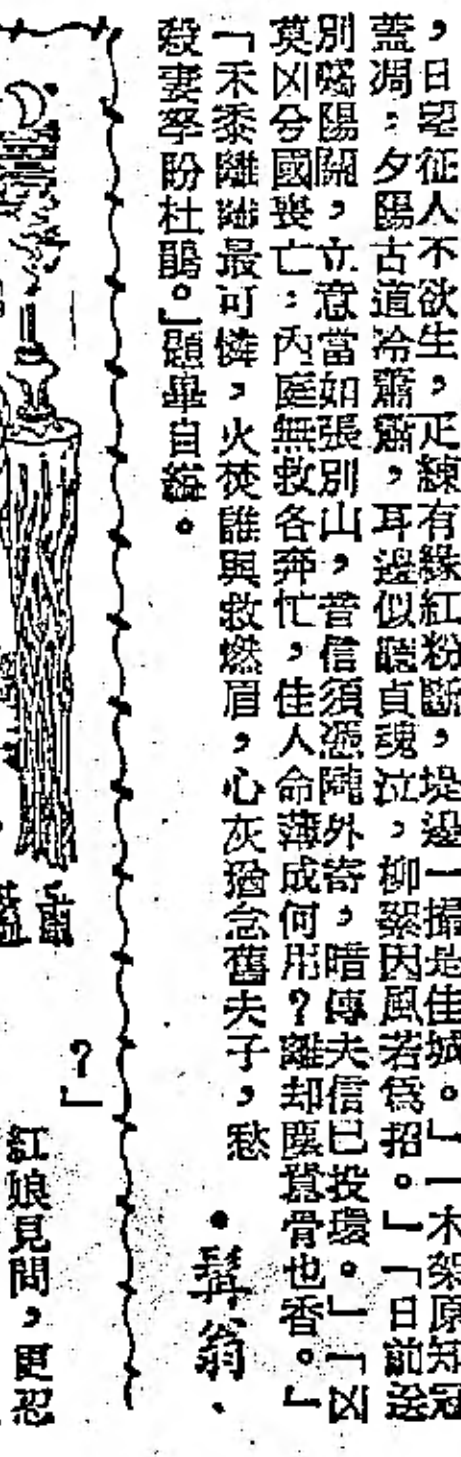 ，日望征人不欲生，疋練有緣紅粉斷，堤邊一撮是佳城。」「木架原知冠
蓋凋：夕陽古道冷蕭蕭，耳邊似聽貞魂泣，柳絮因風若爲招。」「日前送
別唱陽關，立意當如張別山，音信須憑隴外寄，暗傳夫信已投環。」「凶
莫凶兮國喪亡：內庭無救各奔忙，佳人命薄成何用？離却塵寰骨也香。」
「禾黍離離最可憐，火焚誰與救燃眉，心灰猶念舊夫子，愁
殺妻孥盼杜鵑。」題畢自縊。
•髯翁•
？」
紅娘見問，更忍